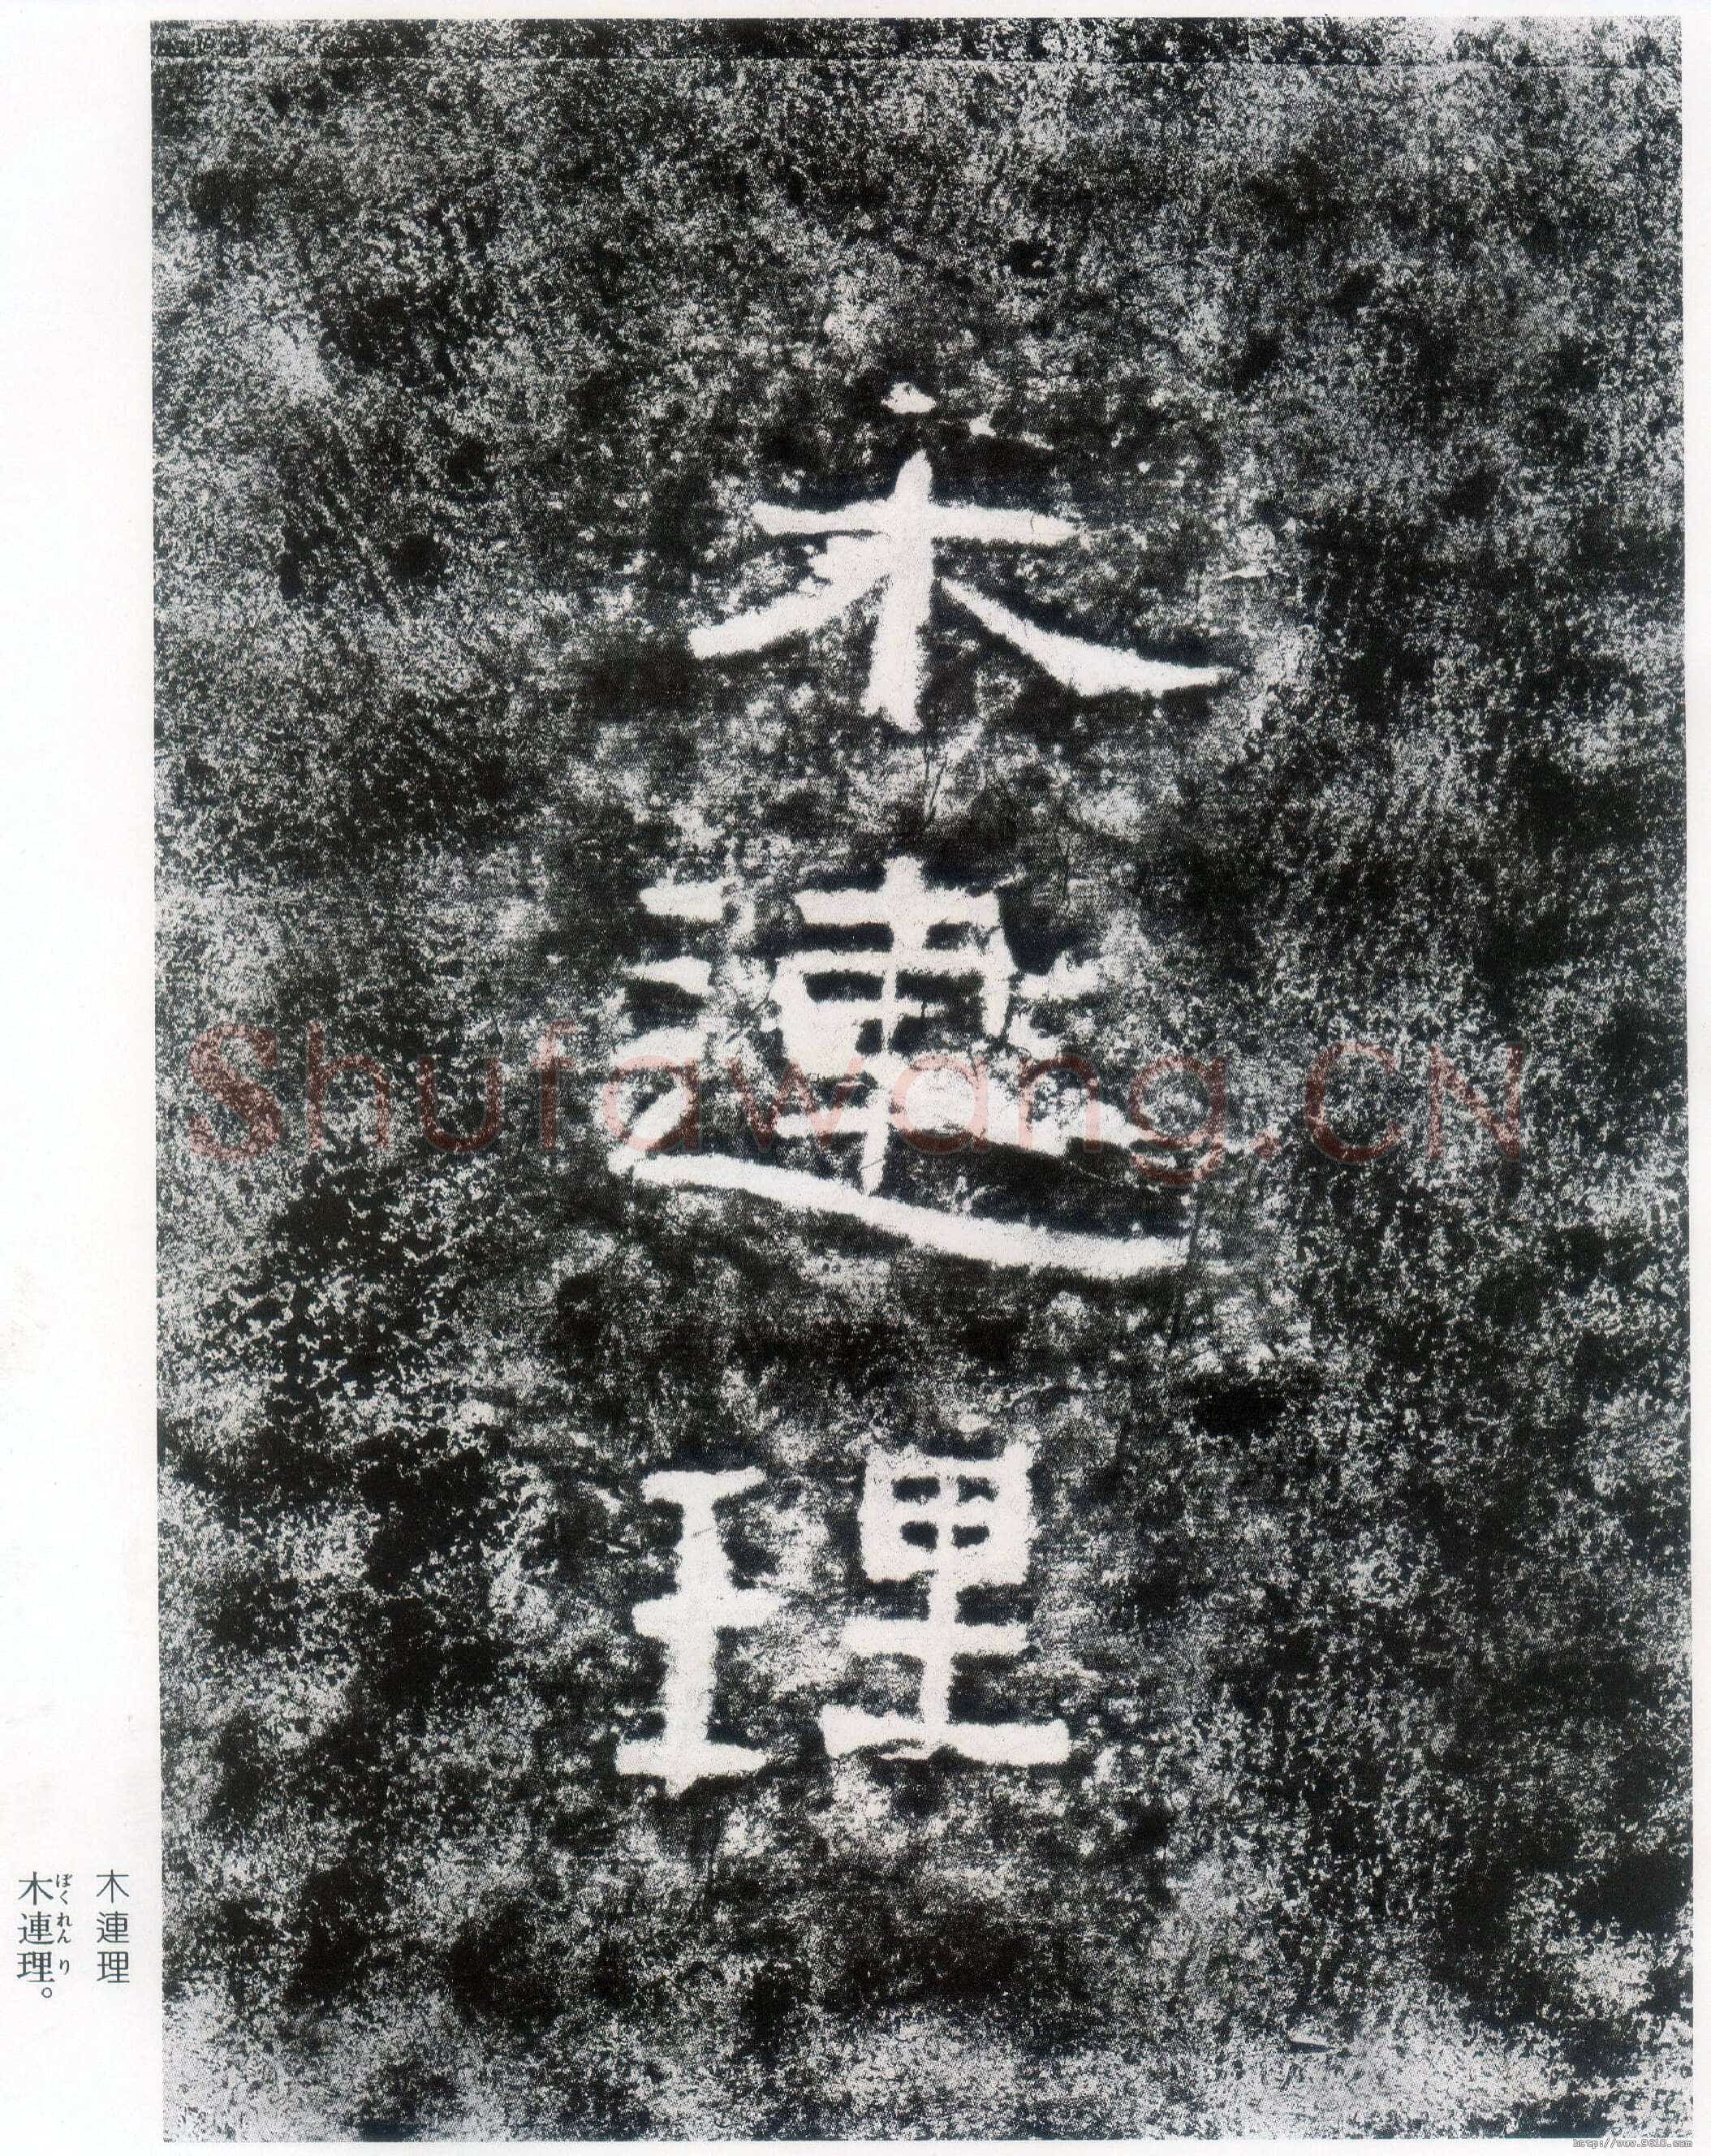 木連理
木連理
木連理。
ぼくれんり
Shufawang.CN
http://www.9610.com